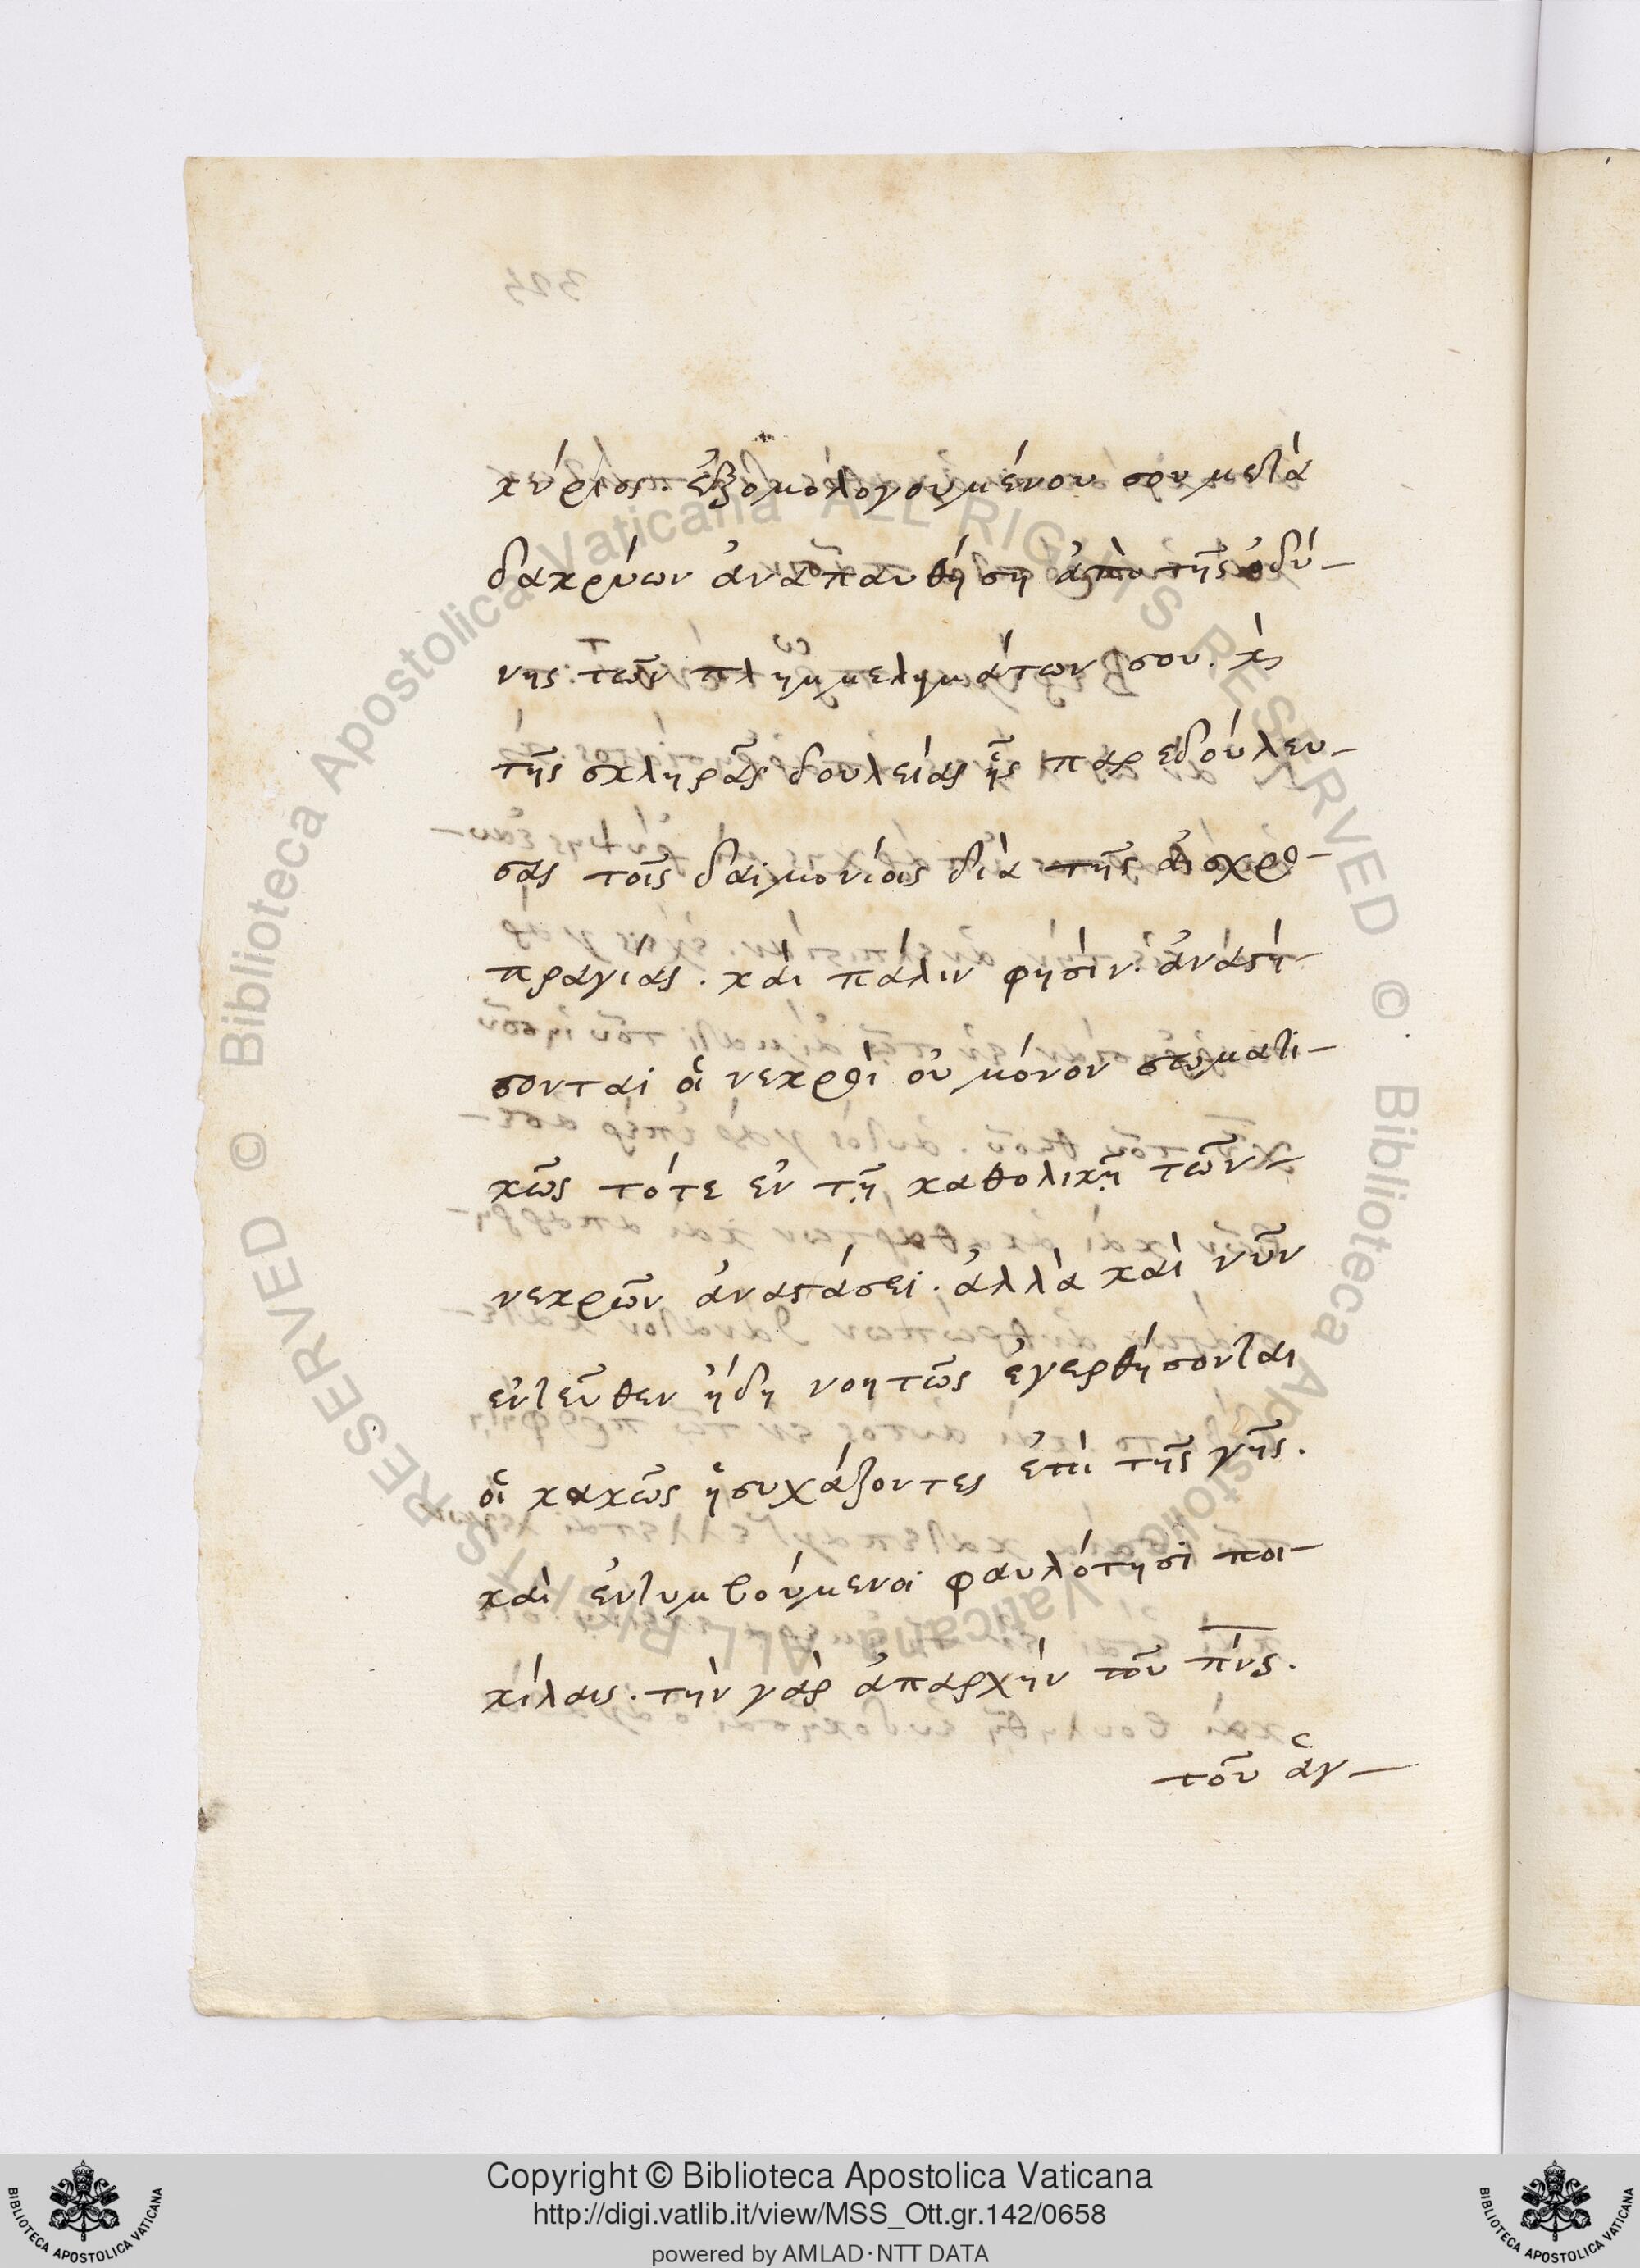 κύριος. ἐξομολογουμένου σου μετὰ
δακρύων ἀναπαυθήσῃ ἀπὸ τῆς ὀδύ-
νης τῶν πλημμελημάτων σου. κ̀
τῆς σκληρᾶς δουλείας ἧς παρεδούλευ-
σας τοῖς δαιμονίοις διὰ τῆς αἰσχρο-
πραγίας. καὶ πάλιν φησὶν. ἀναστή-
σονται οἱ νεκροὶ οὐ μόνον σωματι-
κῶς τότε ἐν τῇ καθολικῇ τῶν
νεκρῶν ἀναστάσει. ἀλλὰ καὶ νῦν
ἐντεῦθεν ἤδη νοητῶς ἐγερθήσονται
οἱ κακῶς ἡσυχάζοντες ἐπὶ τῆς γῆς.
καὶ ἐντυμβούμενοι φαυλότησι ποι-
κίλαις. τὴν γὰρ ἀπαρχὴν τοῦ πνς.
τοῦ ἁγ-
Copyright © Biblioteca Apostolica Vaticana
http://digi.vatlib.it/view/MSS_Ott.gr.142/0658
powered by AMLAD·NTT DATA
BIBLIOTECA APOSTOLICA VATICANA
BIBLIOTECA APOSTOLICA VATICANA
© Biblioteca Apostolica Vaticana ALL RIGHTS RESERVED
© Biblioteca Apostolica Vaticana ALL RIGHTS RESERVED